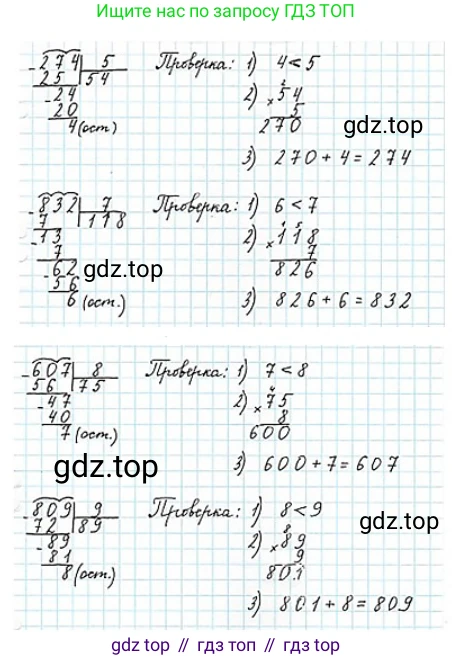 Ищите нас по запросу ГДЗ ТОП
274 | 5 Проверка: 1) 4 < 5
25 | 54
24 2) × 54
20 5
4 (ост.) 270
gdz.top
3) 270 + 4 = 274
832 | 7 Проверка: 1) 6 < 7
7 | 118
13 2) × 118
7 7
62 826
gdz.top
56
6 (ост.) 3) 826 + 6 = 832
607 | 8 Проверка: 1) 7 < 8
56 | 75
47 2) × 75
40 8
7 (ост.) 600
gdz.top
3) 600 + 7 = 607
809 | 9 Проверка: 1) 8 < 9
72 | 89
89 2) × 89
81 9
8 (ост.) 801
gdz.top
3) 801 + 8 = 809
gdz top // гдз топ // gdz.top